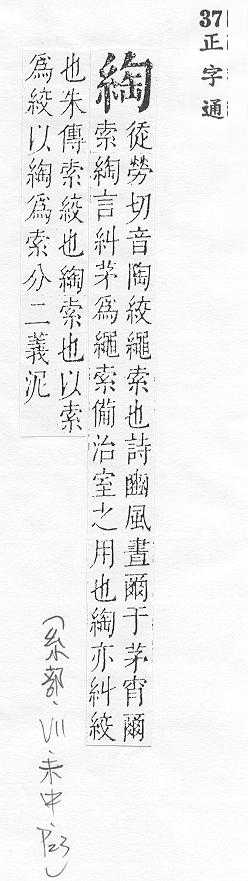 37正字通
綯
徒勞切音陶絞繩索也詩豳風晝爾于茅宵爾
索綯言糾茅爲繩索備治室之用也綯亦糾絞
也朱傳索絞也綯索也以索
爲絞以綯爲索分二義泥
(糸部·VII·未中·P23)